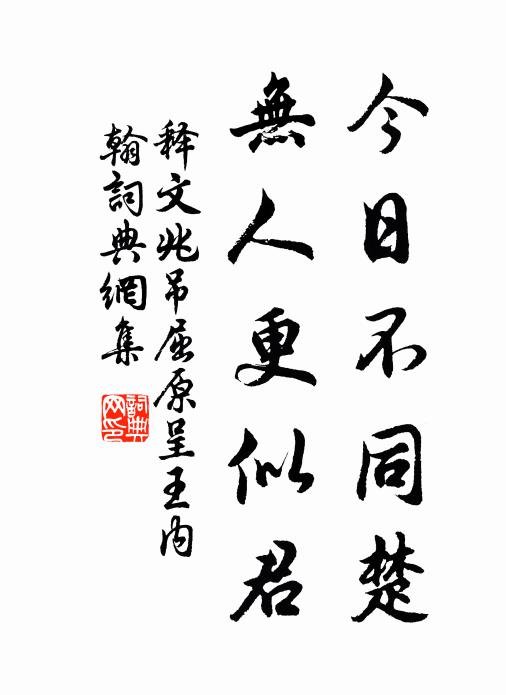 今日不同楚
無人更似君
释文兆吊屈原呈王内
翰詞典網集
詞典
网印